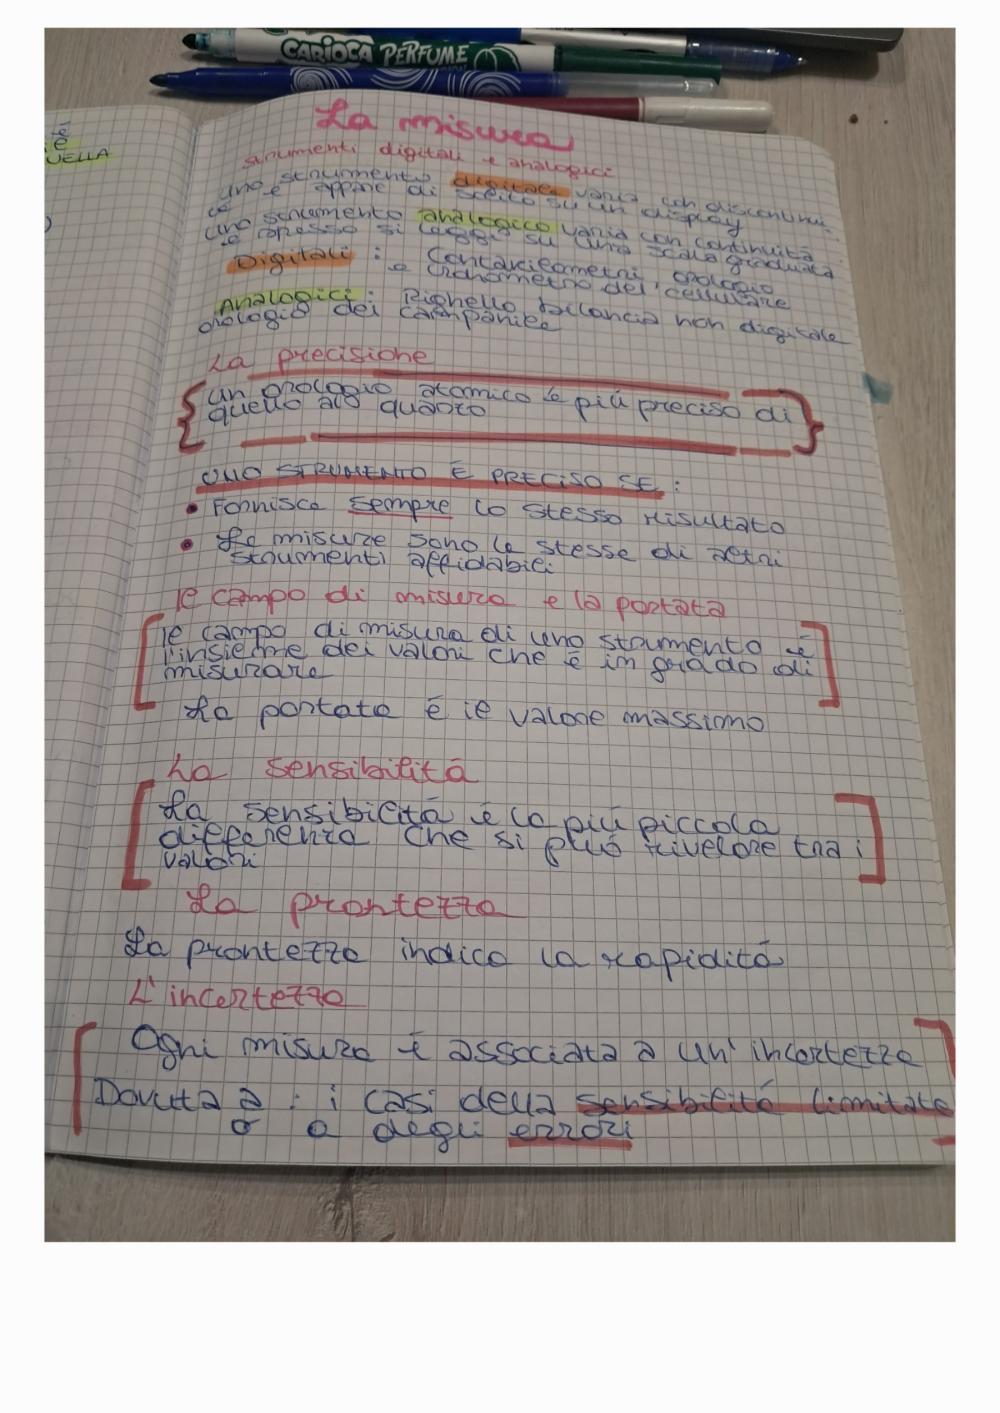 CARIOCA PERFUME
è
VELLA
La misura
strumenti digitali e analogici
uno strumento digitale varia con discontinui
tà e appare di solito su un display
uno strumento analogico varia con continuità
e spesso si legge su una scala graduata
Digitali : Contachilometri, orologio
e cronometro del cellulare
Analogici : Righello, bilancia non digitale
orologio dei campanile
La precisione
un orologio atomico è più preciso di
quello al quarzo
UNO STRUMENTO È PRECISO SE :
• Fornisce sempre lo stesso risultato
• Le misure sono le stesse di altri
strumenti affidabili
Il campo di misura e la portata
Il campo di misura di uno strumento è
l'insieme dei valori che è in grado di
misurare
La portata è il valore massimo
La sensibilitá
La sensibilitá é la più piccola
differenza che si può rivelare tra i
valori
La prontezza
La prontezza indica la rapiditá
L'incertezza
Ogni misura è associata a un'incertezza
Dovuta a : i casi della sensibilitá limitata
o a degli errori